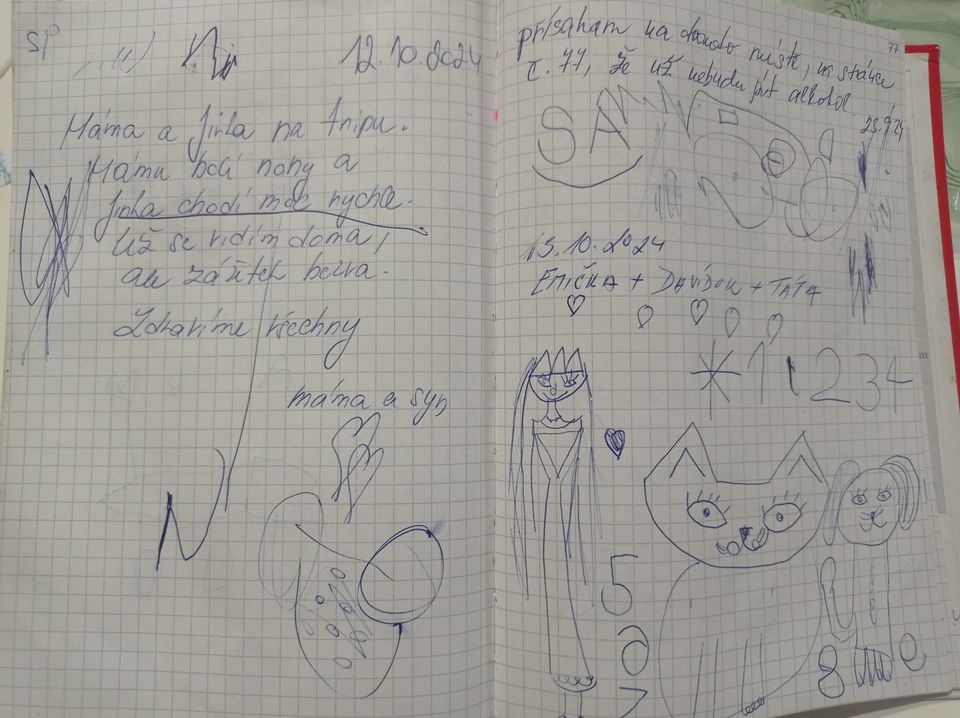 SP
12.10.2024
Máma a Jirka na tripu.
Mámu bolí nohy a
Jirka chodí moc rychle.
Už se vidím doma,
ale zážitek bezva.
Zdravíme všechny
máma a syn
77
přísaham na tomto místě, na stránce
č. 77, že už nebudu pít alkohol.
23.9.24
SA
13.10.2024
EMIČKA + DAVÍDEK + TÁTA
* 1 2 3 4
5
6
7
8